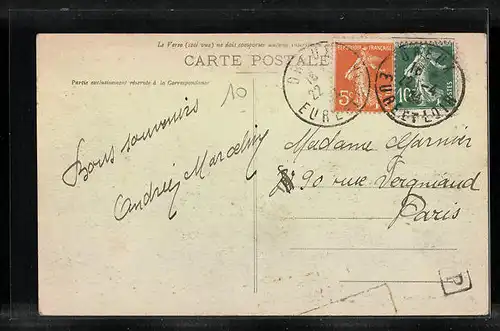 Le Verso (côté vue) ne doit comporter aucune
CARTE POSTALE
Partie exclusivement réservée à la Correspondance
10
Bons souvenirs
Andrée Marcelin
RÉPUBLIQUE FRANÇAISE
5c
10
18
22
EURE-ET-LOIR
Madame Garnier
90 rue Vergniaud
Paris
P